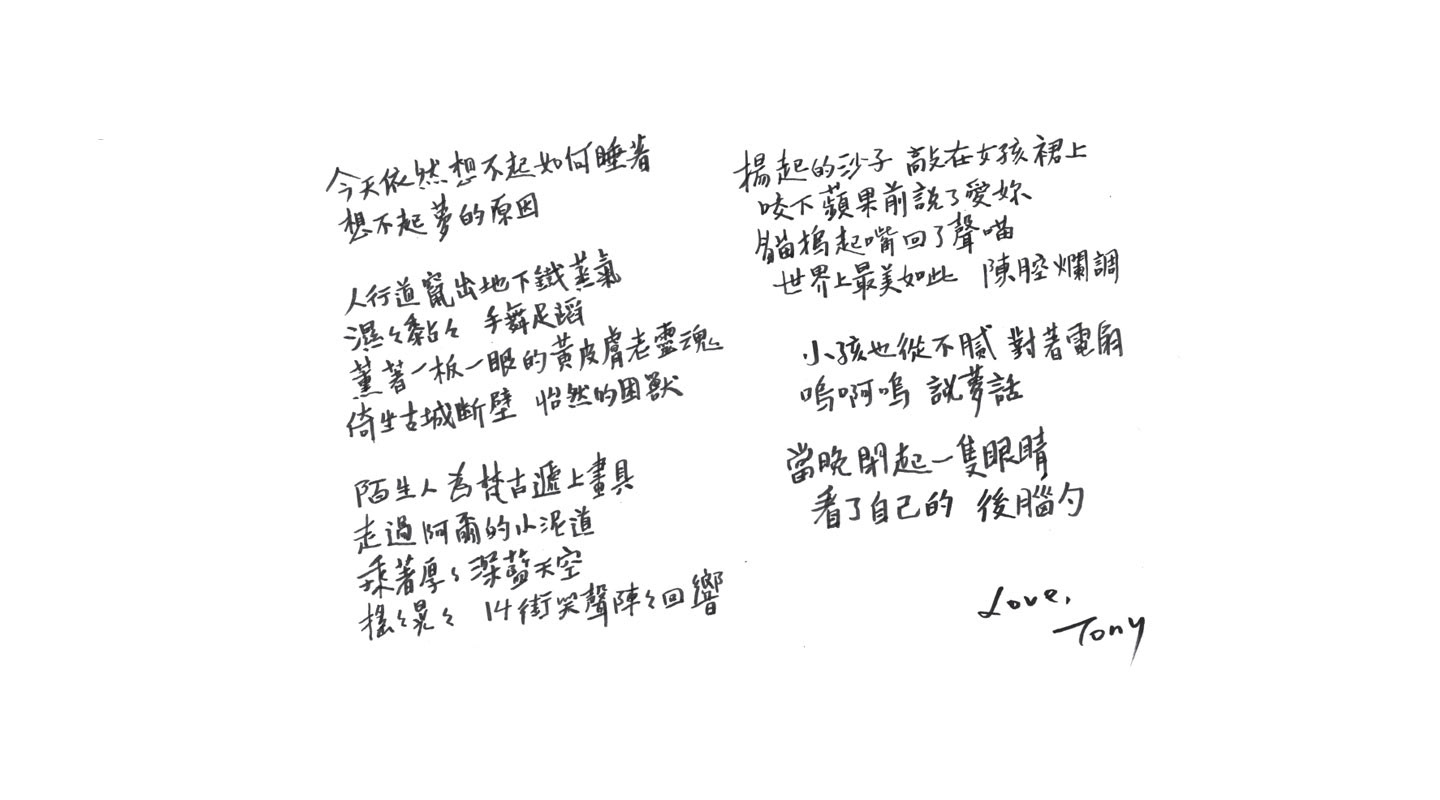 今天依然想不起如何睡著
想不起夢的原因
人行道竄出地下鐵蒸氣
濕々黏々 手舞足蹈
薰著一板一眼的黃皮膚老靈魂
倚坐古城斷壁 怡然的困獸
陌生人為梵古遞上畫具
走過阿爾的小泥道
乘著厚々深藍天空
搖々晃々 14街笑聲陣々回響
揚起的沙子 敲在女孩裙上
咬下蘋果前說了愛妳
貓摀起嘴回了聲喵
世界上最美如此 陳腔爛調
小孩也從不膩 對著電扇
嗚啊嗚 說夢話
當晚閉起一隻眼睛
看了自己的 後腦勺
Love,
Tony